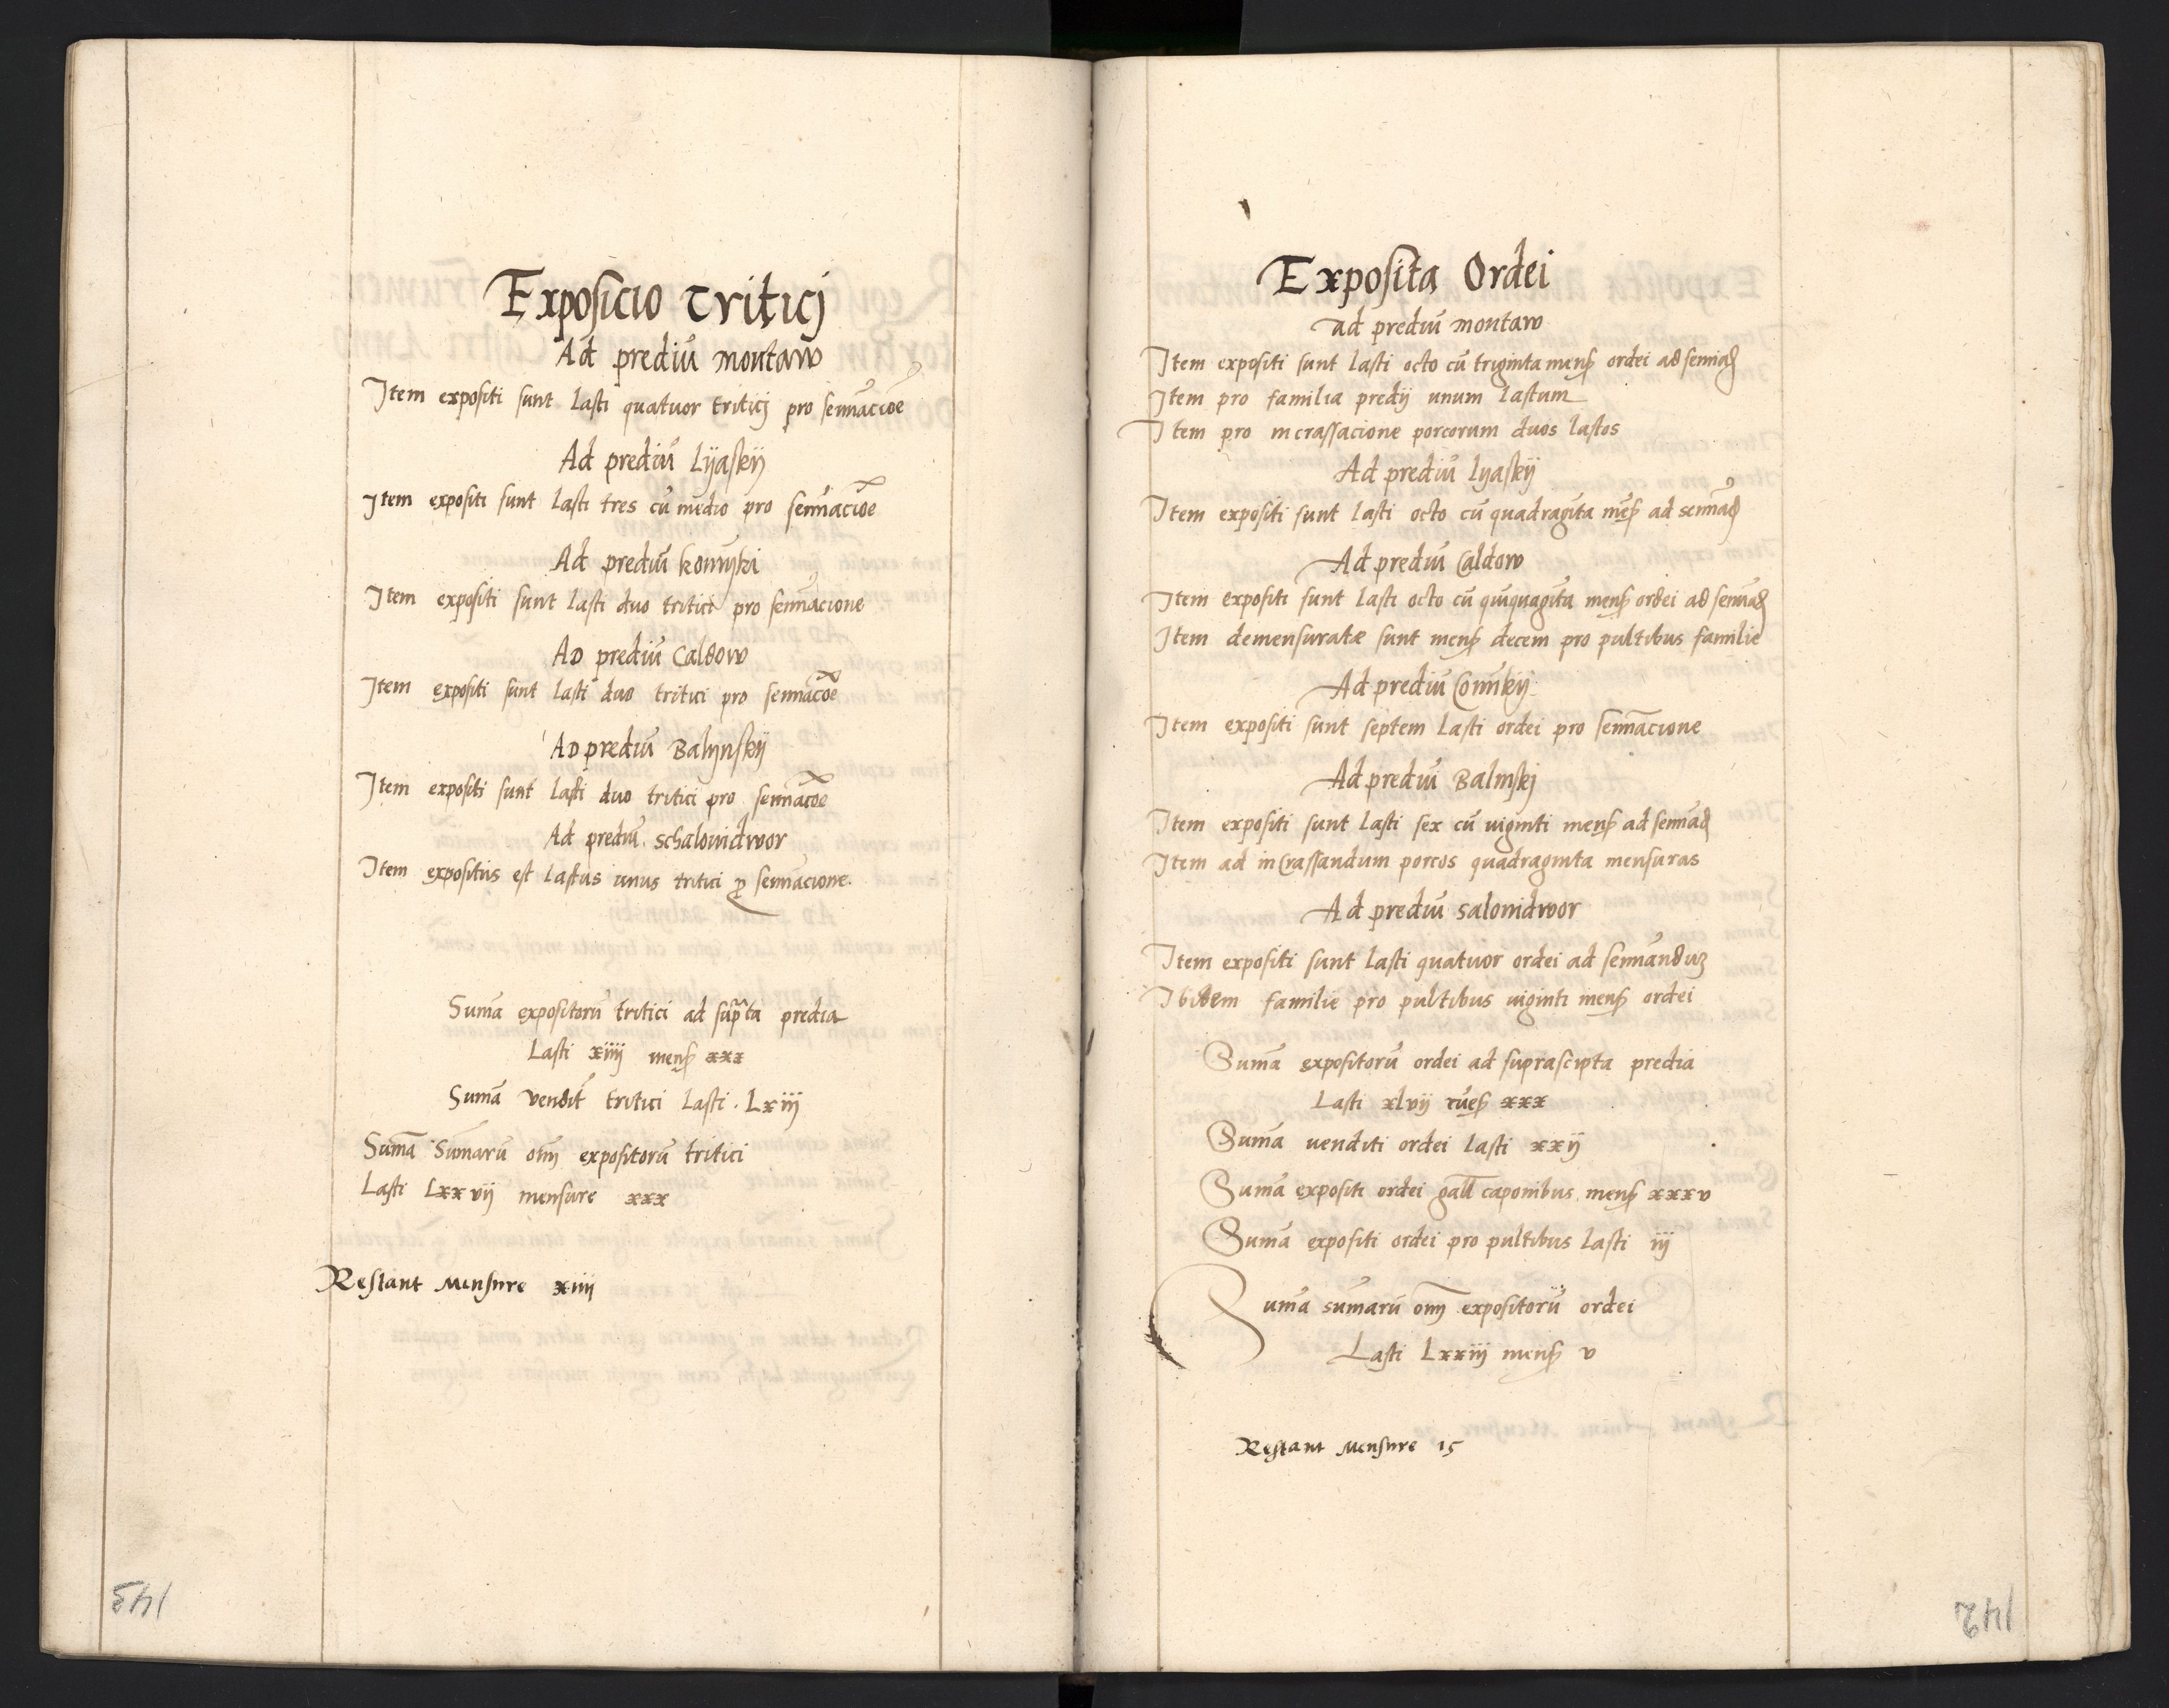 Exposicio triticj
Ad prediū montaw
Item expositi sunt lasti quatuor triticj pro semīacōe
Ad prediū Lyaskÿ
Item expositi sunt lasti tres cū medio pro semīacōe
Ad prediū komÿki
Item expositi sunt lasti duo tritici pro semīacione
AD prediū Caldow
Item expositi sunt lasti duo tritici pro semīacōe
AD prediū Balÿnskÿ
Item expositi sunt lasti duo tritici pro semīacōe
Ad prediū schalonidwor
Item expositus est lastus unus tritici ꝓ semīacione
Suma expositorū tritici ad sup̄ta predia
Lasti xiiij mens xxx
Sumā vendit tritici lasti Lxiij
Sumā Sumarū oīm expositorū tritici
Lasti Lxxvij mensure xxx
Restant Mensure xiiij
143
Exposita Ordei
ad prediū montaw
Item expositi sunt lasti octo cū triginta mens ordei ad semīad
Item pro familia predij unum lastum
Item pro incrassacione porcorum duos lastos
Ad prediū lyaskÿ
Item expositi sunt lasti octo cū quadragīta mēs ad semīad
Ad prediū Caldow
Item expositi sunt lasti octo cū qūiquagīta mens ordei ad semīad
Item demensuratæ sunt mens decem pro pultibus familie
Ad prediū Comkÿ
Item expositi sunt septem lasti ordei pro semīacione
Ad prediū Balinskj
Item expositi sunt lasti sex cū uiginti mens ad semīad
Item ad incrassandum porcos quadraginta mensuras
Ad prediū salonidwor
Item expositi sunt lasti quatuor ordei ad semīanduꝫ
Ibidem familie pro pultibus uiginti mens ordei
Sumā expositorū ordei ad suprascipta predia
Lasti xlvij mēs xxx
Sumā venditi ordei lasti xxij
Sumā expositi ordei gall caponibus mens xxxv
Sumā expositi ordei pro pultibus lasti iij
Sumā sumarū oīm expositorū ordei
Lasti Lxxiij mens v
Restant Mensure 15
142